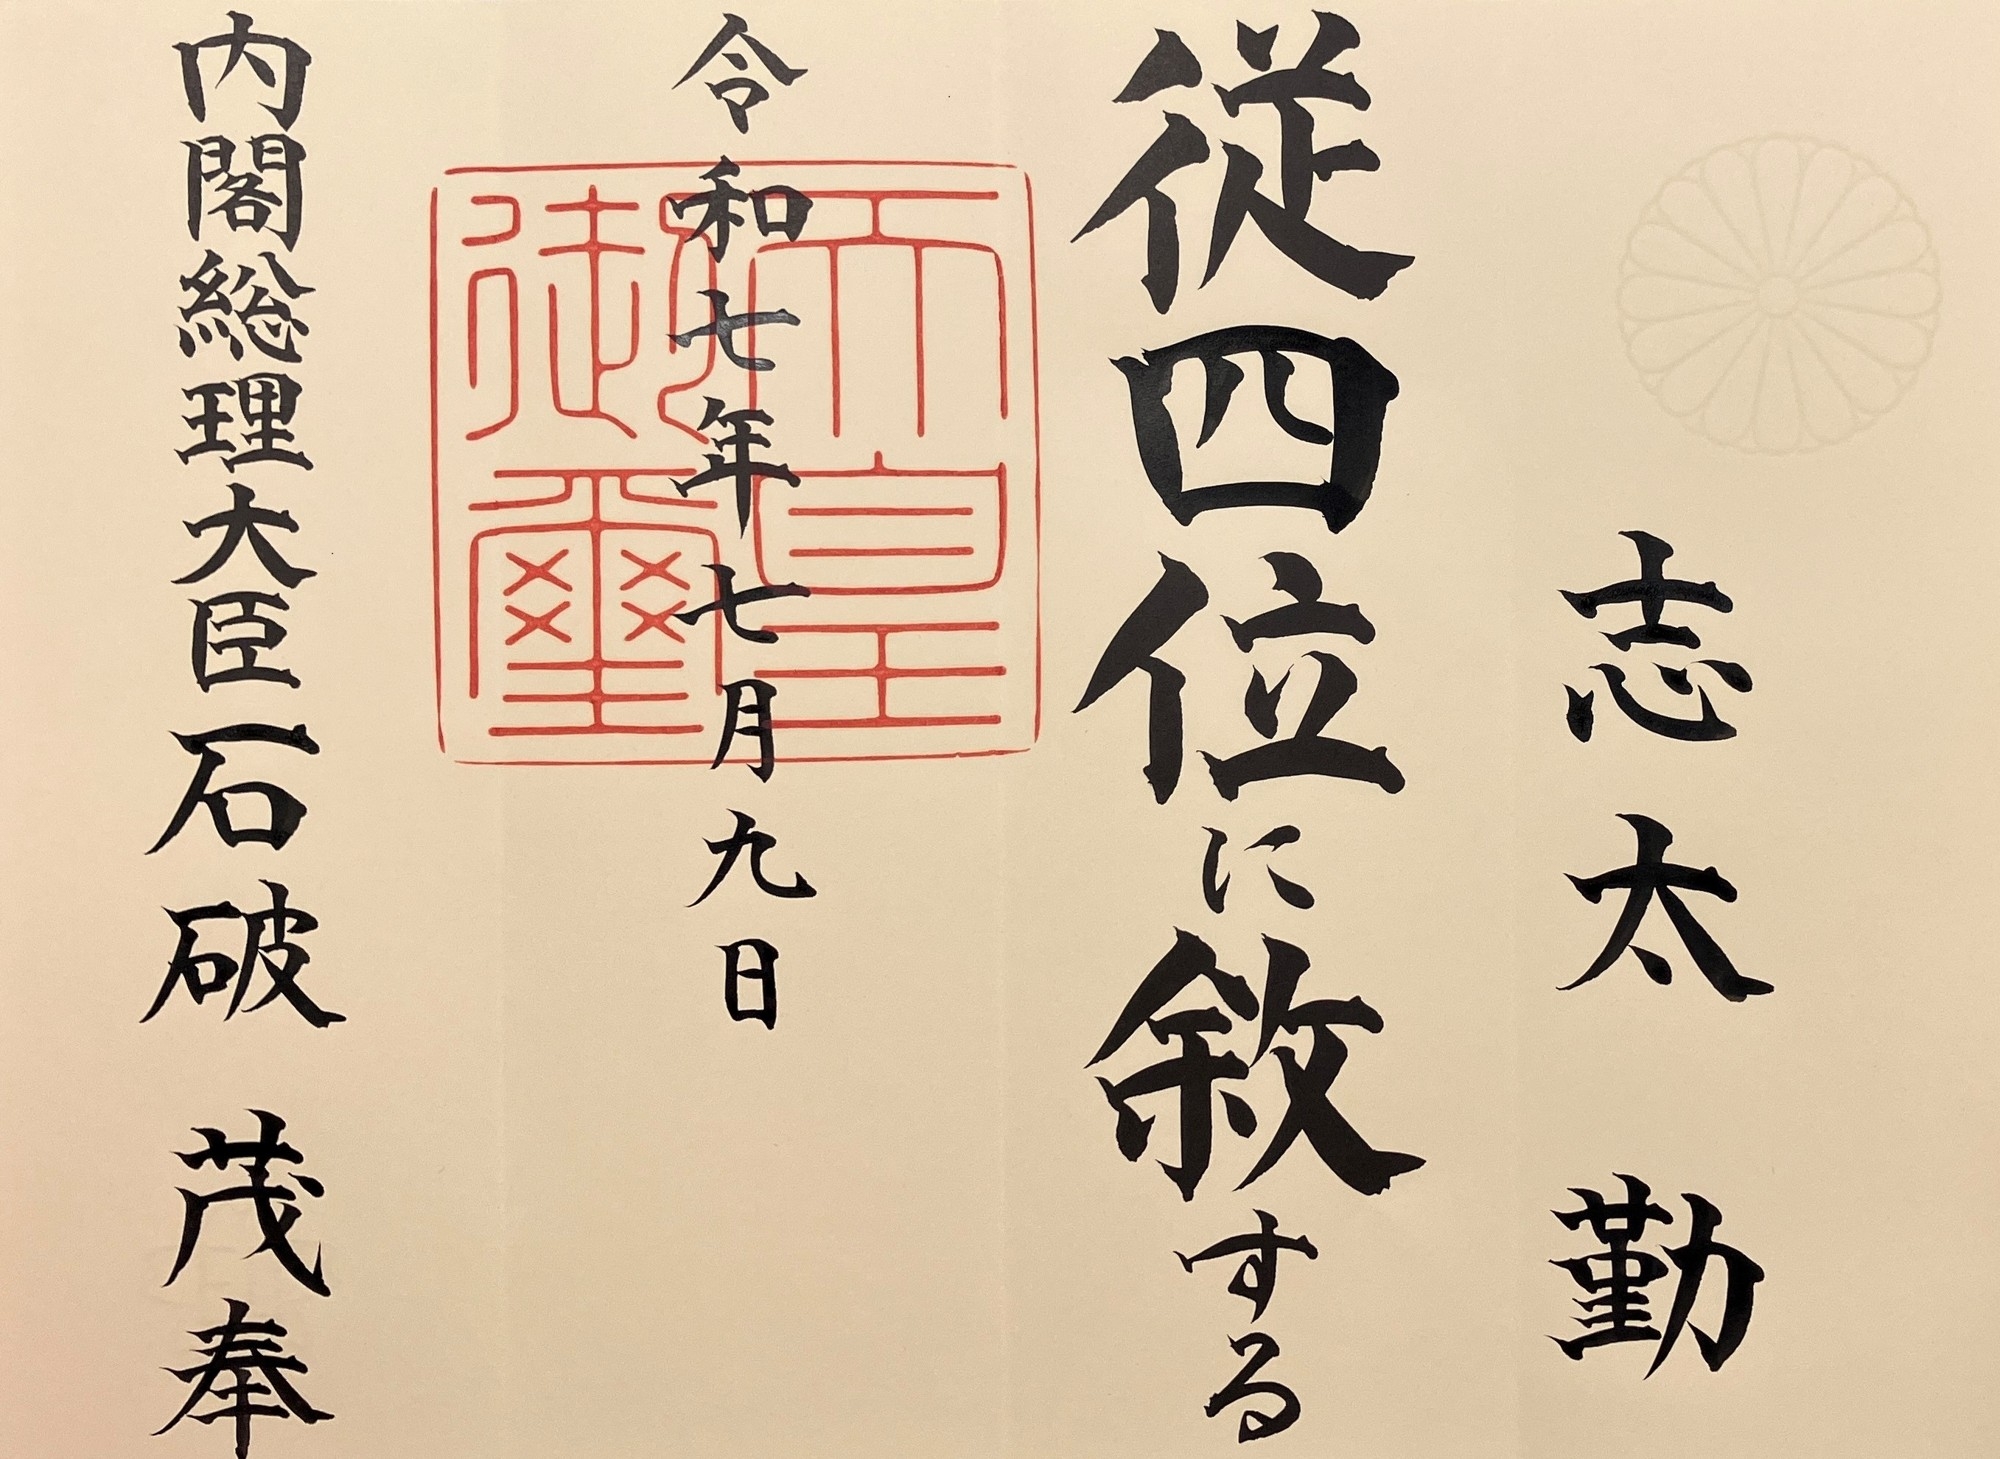 志太 勤
従四位に敘する
令和七年七月九日
天皇
御璽
内閣総理大臣石破 茂奉